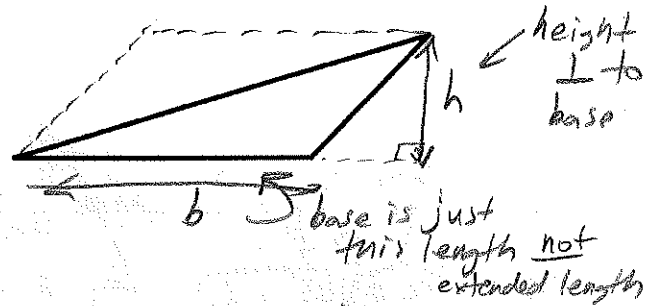 height
⊥ to
base
h
b
base is just
this length not
extended length